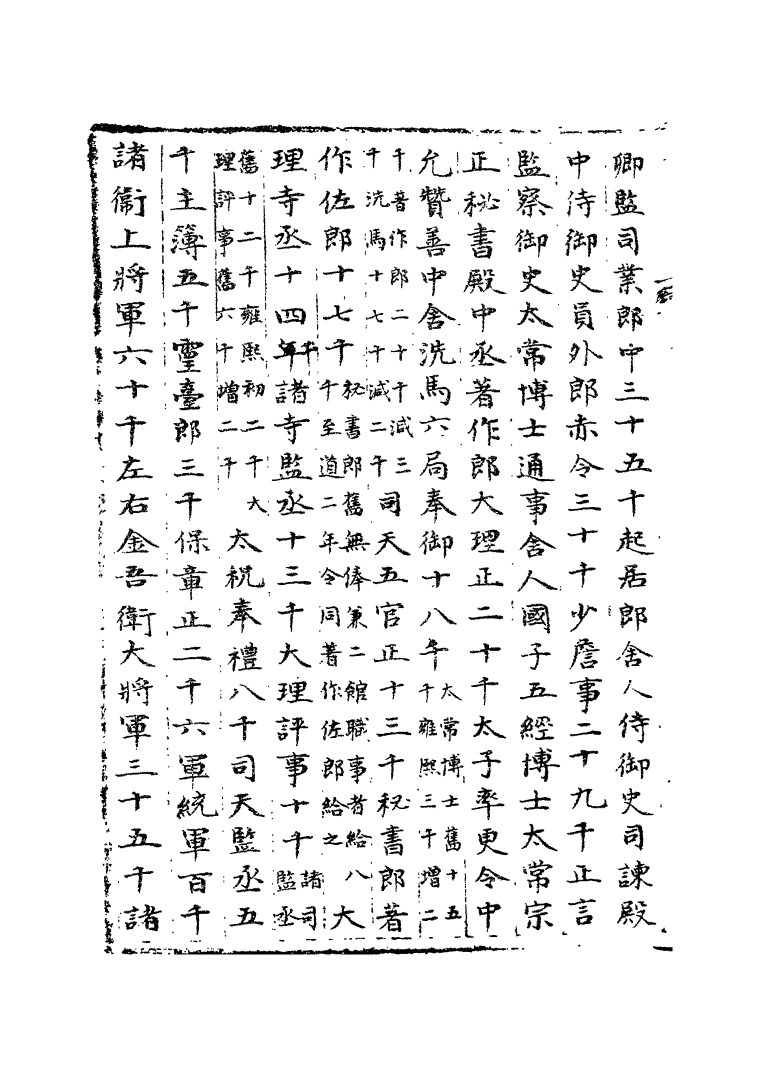 卿監司業郎中三十五千起居郎舍人侍御史司諫殿
中侍御史員外郎赤令三十千少詹事二十九千正言
監察御史太常博士通事舍人國子五經博士太常宗
正秘書殿中丞著作郎大理正二十千太子率更令中
允贊善中舍洗馬六局奉御十八千太常博士舊十五千雍熙三千增二
千著作郎二十千減三千洗馬十七千減二千司天五官正十三千秘書郎著
作佐郎十七千秘書郎舊無俸兼二館職事者給八千至道二年令同著作佐郎給之大
理寺丞十四年千諸寺監丞十三千大理評事十千諸司監丞
舊十二千雍熙初二千大理評事舊六千增二千太祝奉禮八千司天監丞五
千主簿五千靈臺郎三千保章正二千六軍統軍百千
諸衛上將軍六十千左右金吾衛大將軍三十五千諸